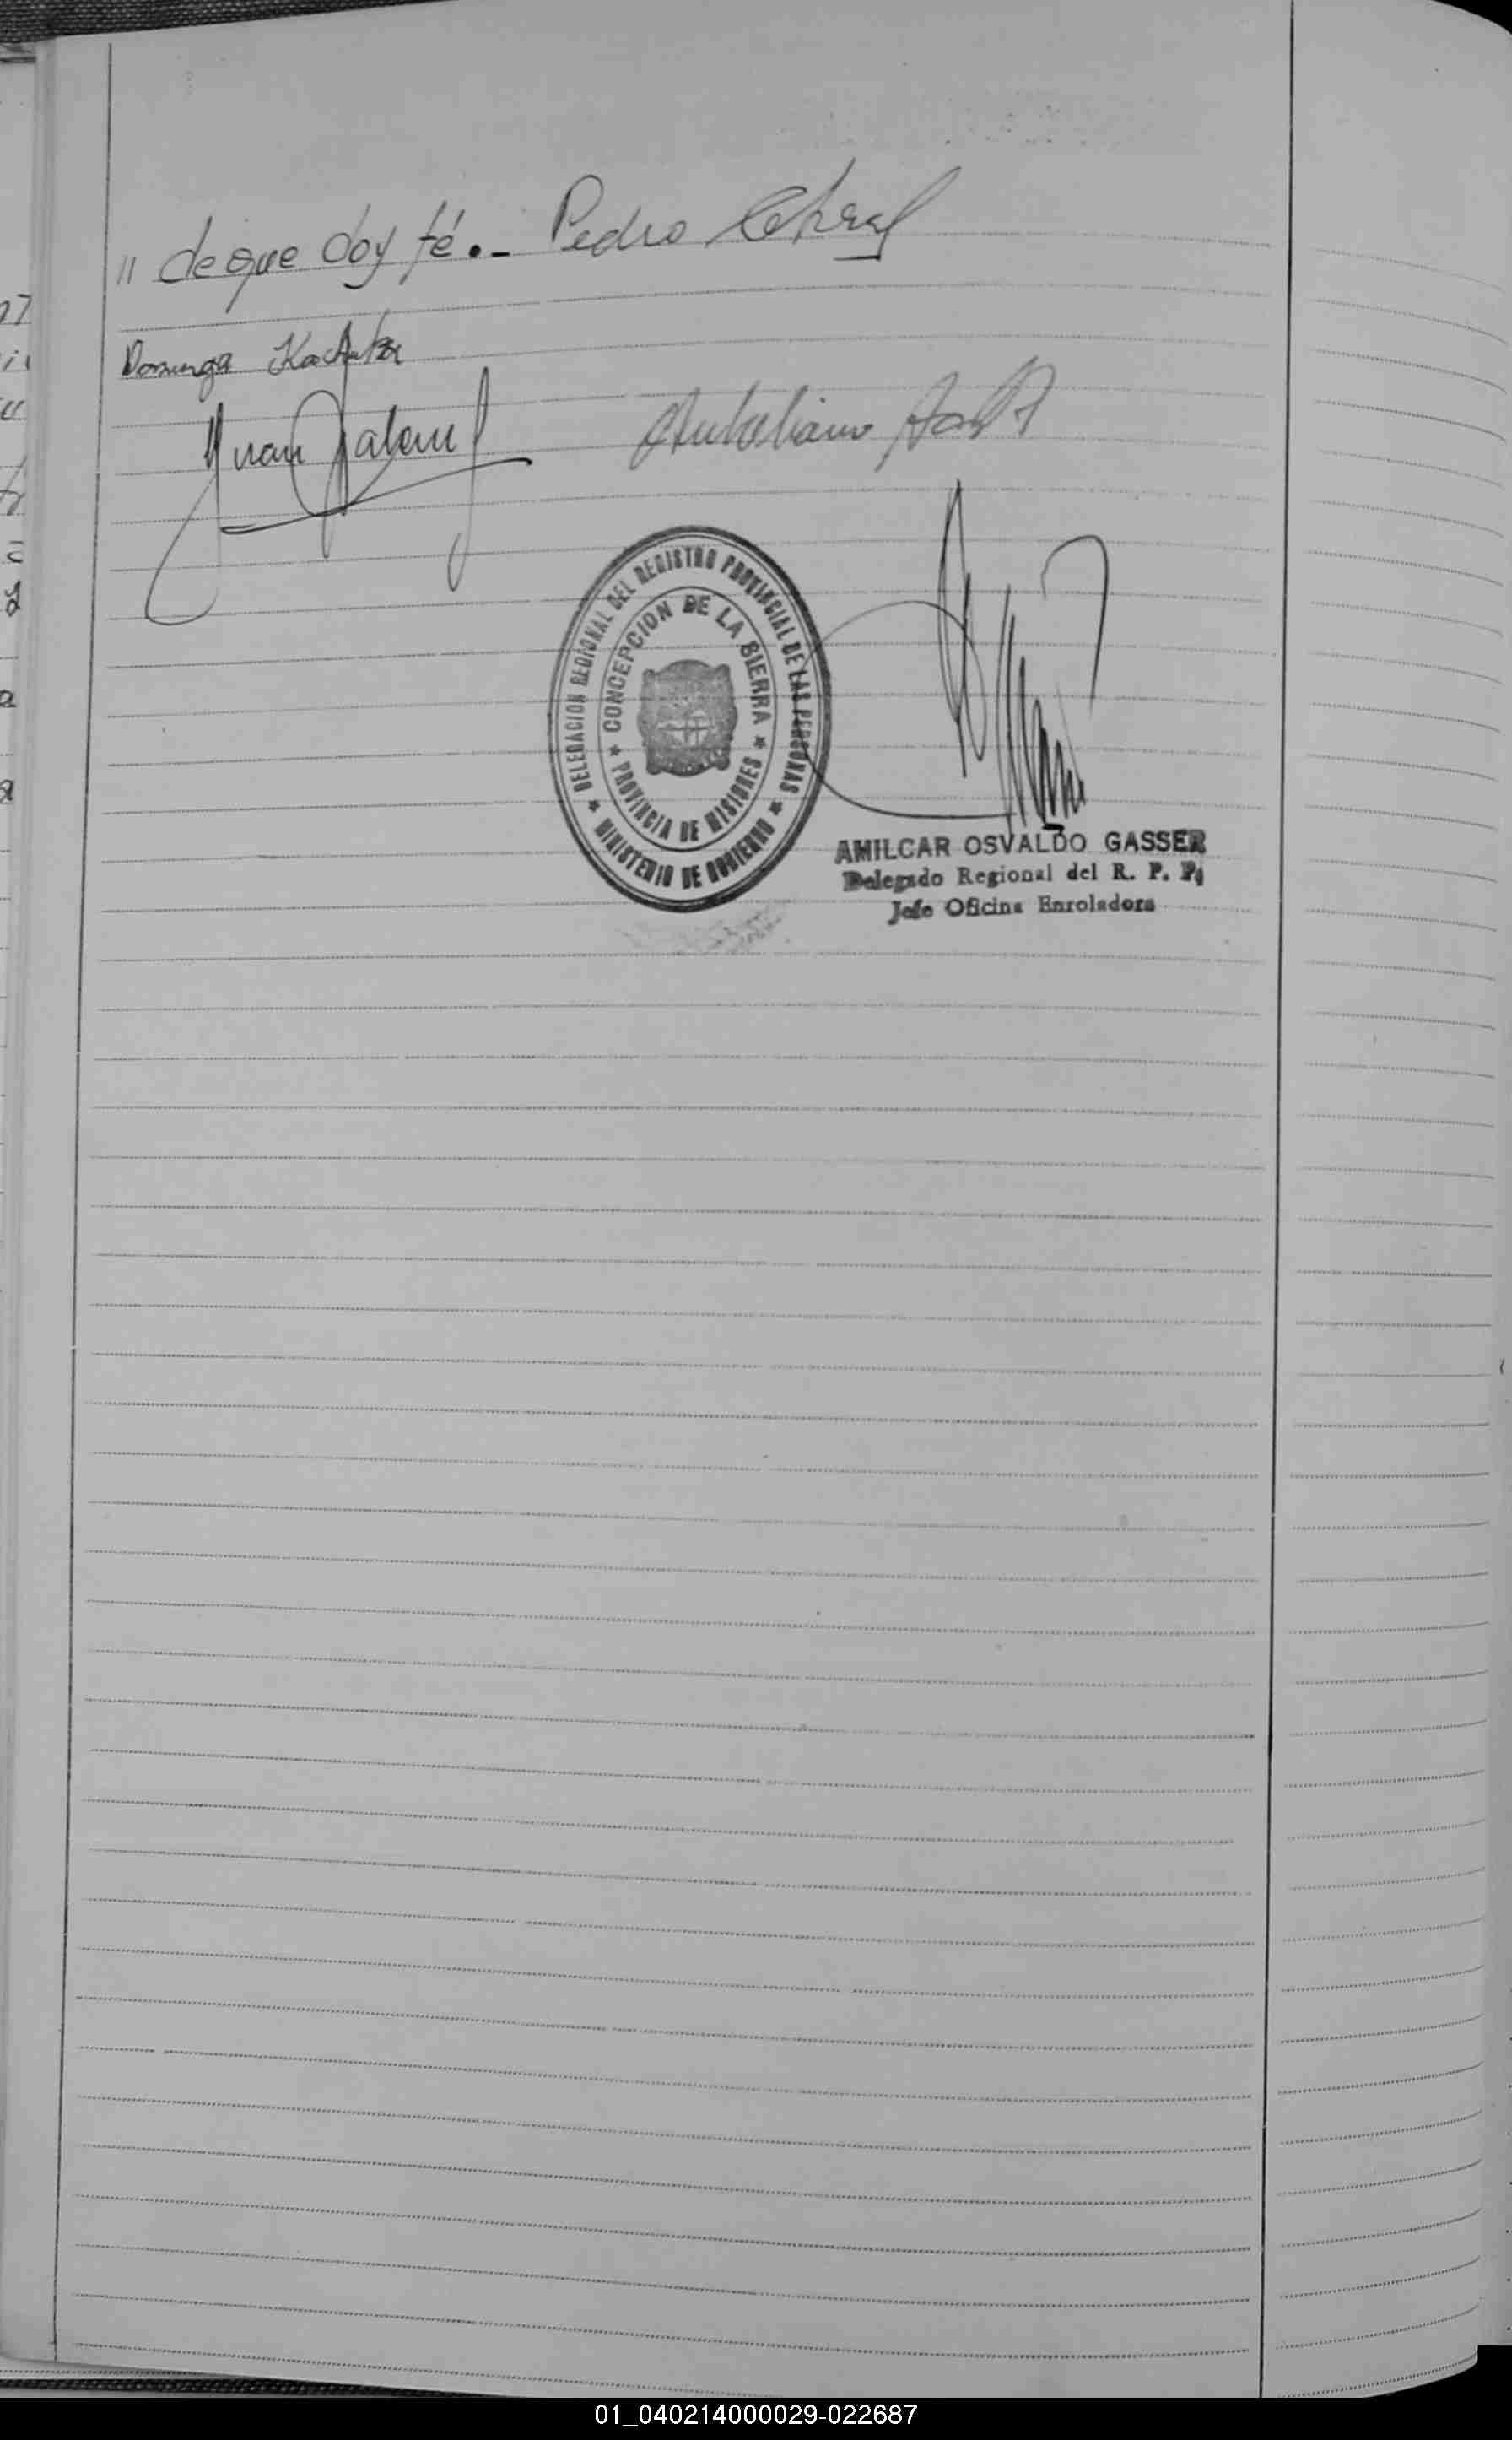 " de que doy fé.- Pedro Cabral
Dominga
Juan
DELEGACION REGIONAL DEL REGISTRO PROVINCIAL DE LAS PERSONAS
★ MINISTERIO DE GOBIERNO ★
CONCEPCION DE LA SIERRA
★ PROVINCIA DE MISIONES ★
AMILCAR OSVALDO GASSER
Delegado Regional del R. P. P.
Jefe Oficina Enroladora
01_040214000029-022687